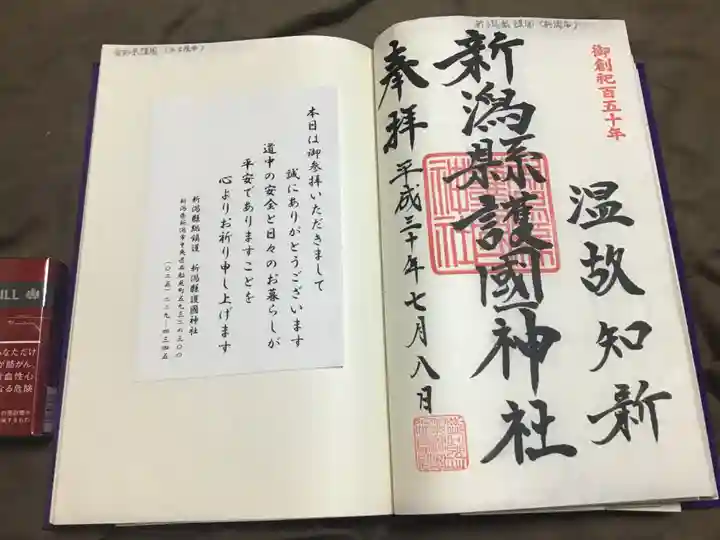 新潟縣護国(新潟市)
御創祀百五十年
温故知新
新潟縣護國神社
奉拝
平成三十年七月八日
本日は御参拝いただきまして
誠にありがとうございます
道中の安全と日々のお暮らしが
平安でありますことを
心よりお祈り申し上げます
新潟縣総鎮護 新潟縣護國神社
新潟県新潟市中央区西船見町五九三二の三〇〇
(〇二五)二二九‐四三四五